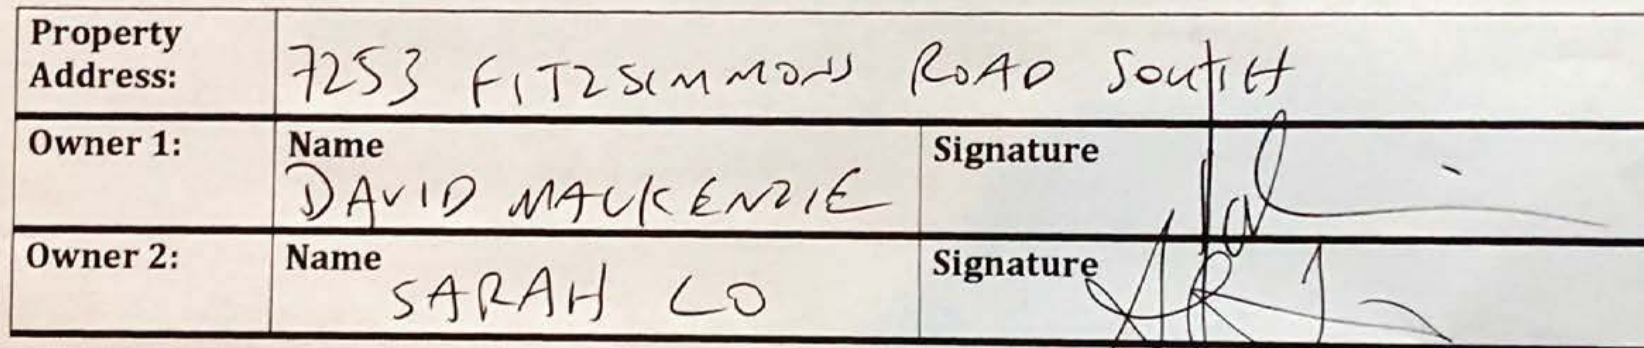 Property
Address:
7253 FITZSIMMONS ROAD SOUTH
Owner 1:
Name
DAVID MACKENZIE
Signature
Owner 2:
Name
SARAH LO
Signature